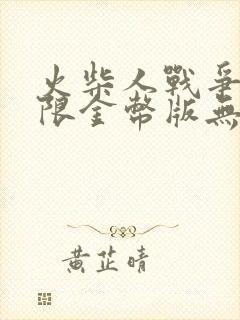 火柴人戰爭
限金幣版無
黃芷晴